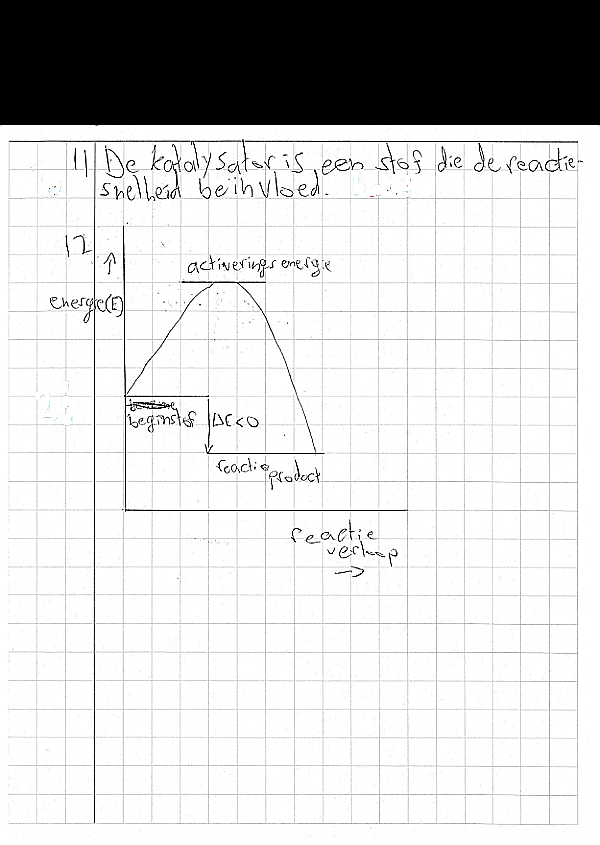 11 De katalysator is een stof die de reactie-
snelheid beïnvloed.
12
↑
activerings energie
energie(E)
beginstof ΔE<0
reactie product
reactie
verloop
→